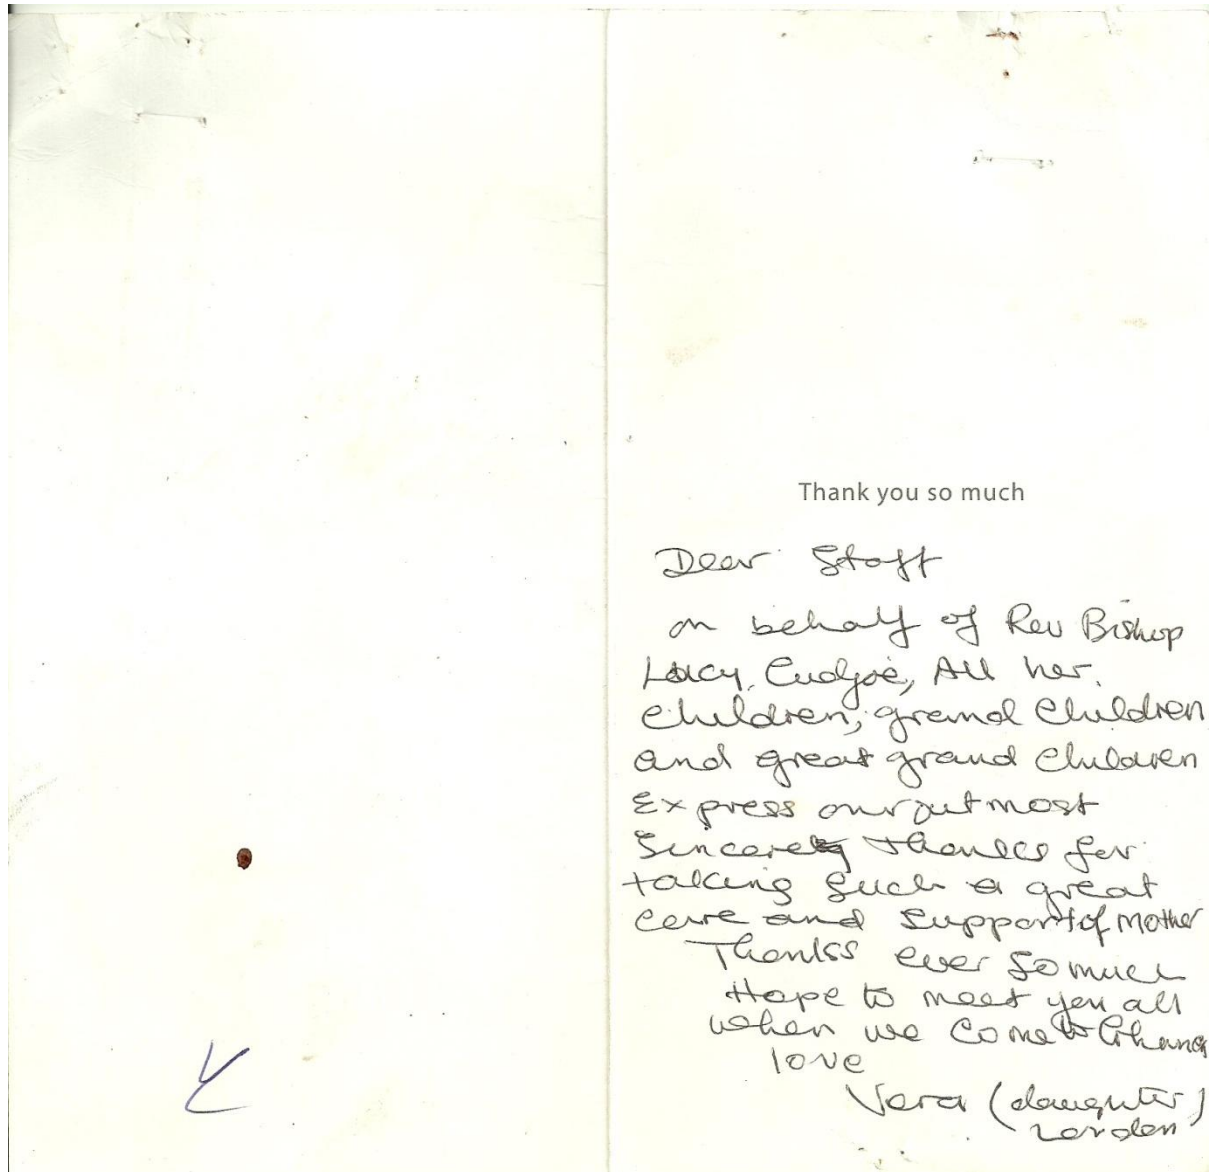 Thank you so much
Dear Staff
on behalf of Rev Bishop
Lucy Cudjoe, All her.
children, grand children
and great grand children
Express our utmost
Sincere thanks for
taking such a great
care and support of Mother
Thanks ever so much
Hope to meet you all
when we come to Ghana
love
Vera (daughter)
London